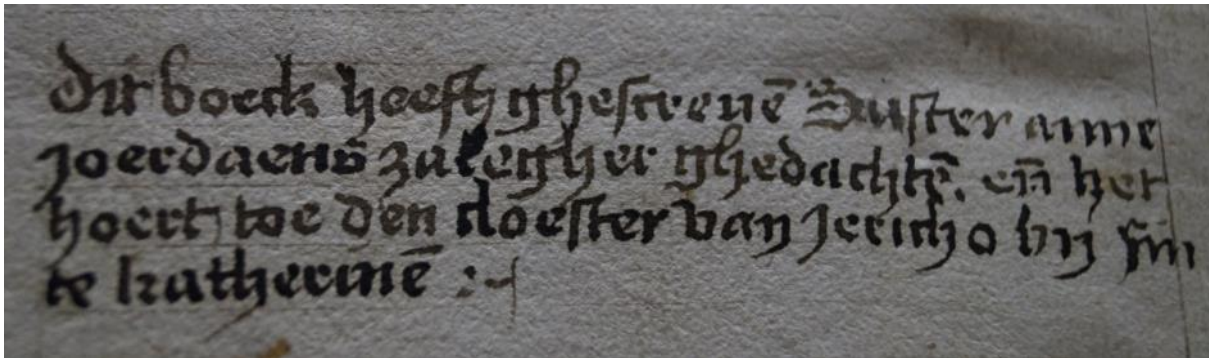 dit boeck heefth ghescreuē Suster anne
Joerdaens zalegher ghedachtē. eñ het
hoerth toe den cloester van Jericho bij sin
te katherinē :-